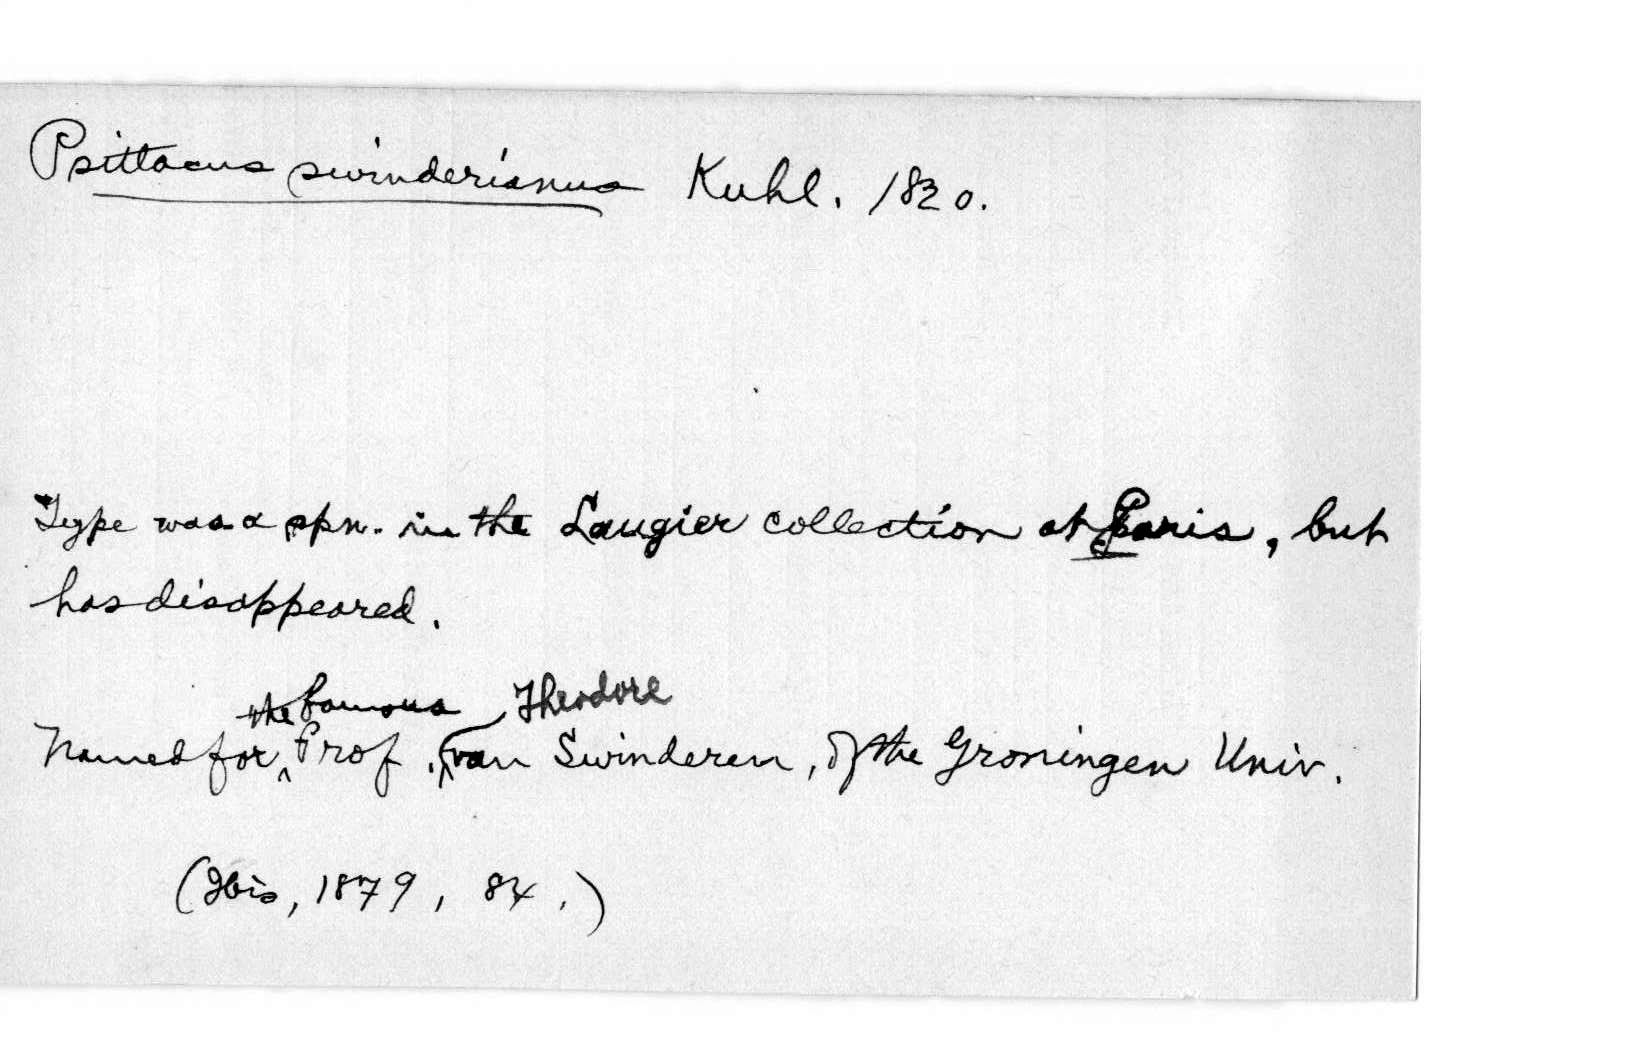 Psittacus swinderianus Kuhl. 1820.
Type was a spn. in the Laugier collection at Paris, but
has disappeared.
the famous Theodore
Named for Prof. van Swinderen, of the Groningen Univ.
(Ibis, 1879, 84.)